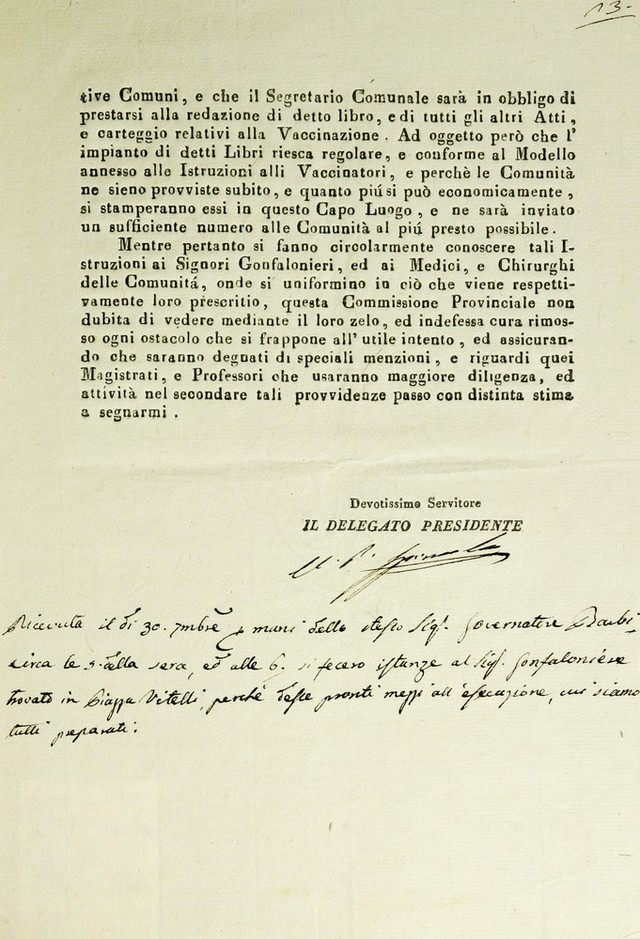 13.
tive Comuni, e che il Segretario Comunale sarà in obbligo di
prestarsi alla redazione di detto libro, e di tutti gli altri Atti,
e carteggio relativi alla Vaccinazione. Ad oggetto però che l'
impianto di detti Libri riesca regolare, e conforme al Modello
annesso alle Istruzioni alli Vaccinatori, e perchè le Comunità
ne sieno provviste subito, e quanto piúsi può economicamente,
si stamperanno essi in questo Capo Luogo, e ne sarà inviato
un sufficiente numero alle Comunità al piú presto possibile.
Mentre pertanto si fanno circolarmente conoscere tali I-
struzioni ai Signori Gonfalonieri, ed ai Medici, e Chirurghi
delle Comunitá, onde si uniformino in ciò che viene respetti-
vamente loro prescritio, questa Commissione Provinciale non
dubita di vedere mediante il loro zelo, ed indefessa cura rimos-
so ogni ostacolo che si frappone all' utile intento, ed assicuran-
do che saranno degnati di speciali menzioni, e riguardi quei
Magistrati, e Professori che usaranno maggiore diligenza, ed
attività nel secondare tali provvidenze passo con distinta stima
a segnarmi.
Devotissimo Servitore
IL DELEGATO PRESIDENTE
Ricevuta il dì 30. 7mbre p mani dello stesso Sigr. Governatore
circa le 5. alla sera, ed alle 6. si fecero istanze al Sigr. Gonfaloniere
trovato in Piazza Vitelli, perchè desse pronti messi all' esecuzione, cui siamo
tutti preparati.